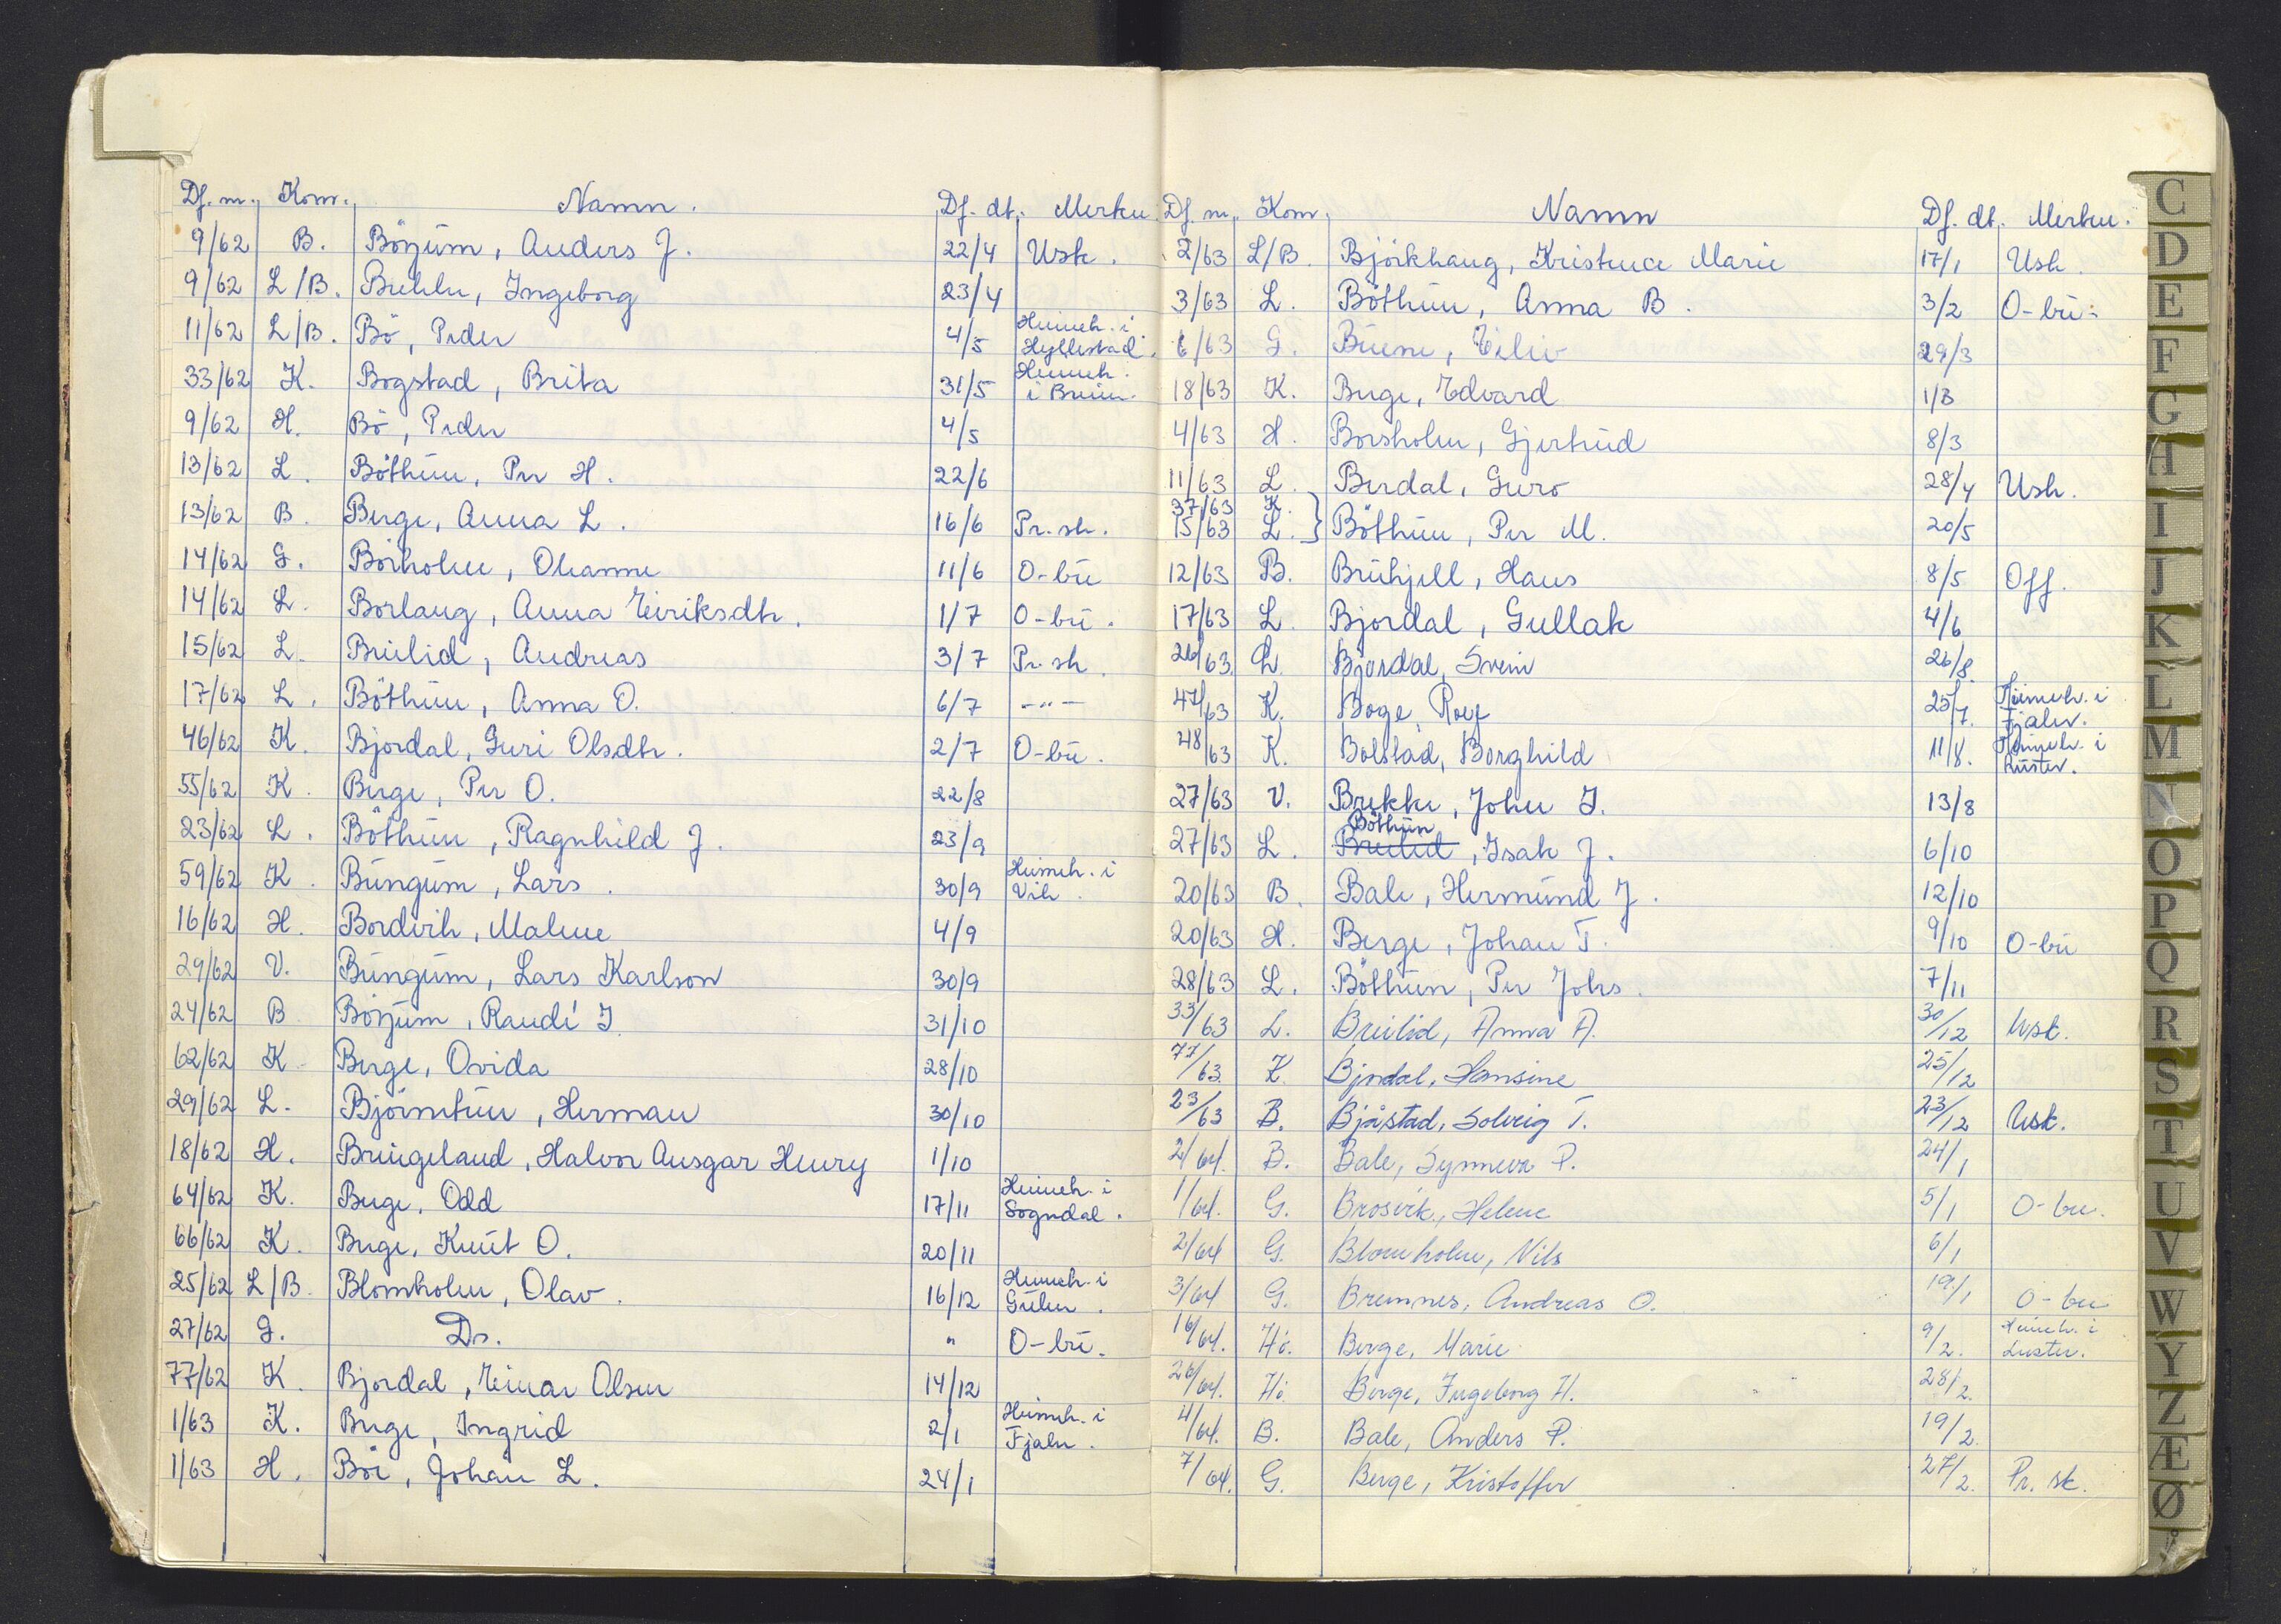 Df. nr. Kom. Namn. Df. dt. Merkn.
9/62 B. Böyum, Anders J. 22/4 Usk.
9/62 L/B. Brekke, Ingeborg 23/4
11/62 L/B. Bö, Peder 4/5 Heimeh. i Hyllestad.
33/62 K. Bogstad, Brita 31/5 Heimeh. i Breim.
9/62 H. Bö, Peder 4/5
13/62 L. Böthun, Per H. 22/6
13/62 B. Berge, Anna L. 16/6 Pr. sk.
14/62 G. Börholm, Oleanne 11/6 O-bu
14/62 L. Borlaug, Anna Eiriksdtr. 1/7 O-bu.
15/62 L. Breilid, Andreas 3/7 Pr. sk.
17/62 L. Böthun, Anna O. 6/7 -"-
46/62 K. Bjordal, Guri Olsdtr. 2/7 O-bu.
55/62 K. Berge, Per O. 22/8
23/62 L. Böthun, Ragnhild J. 23/9
59/62 K. Bungum, Lars. 30/9 Heimeh. i Vik.
16/62 H. Bordvik, Malene 4/9
29/62 V. Bungum, Lars Karlson 30/9
24/62 B Böyum, Randi I. 31/10
62/62 K Berge, Ovida 28/10
29/62 L. Björnetun, Herman 30/10
18/62 H. Bringeland, Halvor Ansgar Henry 1/10
64/62 K. Berge, Odd 17/11 Heimeh. i Sogndal.
66/62 K. Berge, Knut O. 20/11
25/62 L/B. Blomholm, Olav. 16/12 Heimeh. i Gulen.
27/62 G. Do. " O-bu.
77/62 K. Bjordal, Einar Olsen 14/12
1/63 K. Berge, Ingrid 2/1 Heimeh. i Fjaler.
1/63 H. Böe, Johan L. 24/1
Df. nr. Kom. Namn Df. dt. Merkn.
2/63 L/B. Björkhaug, Kristence Marie 17/1 Usk.
3/63 L. Böthun, Anna B. 3/2 O-bu.
6/63 G. Buene, Eiliv 29/3
18/63 K. Berge, Edvard 1/3
4/63 H. Borsholm, Gjertrud 8/3
11/63 L. Berdal, Guro 28/4 Usk.
37/63 K. }
15/63 L. } Böthun, Per M. 20/5
12/63 B. Brühjell, Hans 8/5 Off.
17/63 L. Bjordal, Gullak 4/6
26/63. L. Bjordal, Svein 26/8.
47/63 K. Boge, Rolf 25/7. Heimeh. i Fjaler.
48/63 K. Bolstad, Borghild 11/8. Heimeh. i Luster.
27/63 V. Brekke, John I. 13/8
Böthun
27/63 L. Breilid, Isak J. 6/10
20/63 B. Bale, Hermund J. 12/10
20/63 H. Berge, Johan T. 9/10 O-bu
28/63 L. Böthun, Per Johs. 7/11
33/63 L. Breilid, Anna A. 30/12 Usk.
77/63. K. Bjordal, Hansine 25/12
23/63 B. Bjåstad, Solveig T. 23/12 Usk.
2/64. B. Bale, Synneva P. 24/1
1/64. G. Brosvik, Helene 5/1 O-bu.
2/64 G. Blomholm, Nils 6/1
3/64 G. Bremnes, Andreas O. 19/1 O-bu
16/64. Hö. Berge, Marie 9/2. Heimeh. i Luster.
26/64. Hö. Berge, Ingeborg H. 28/2.
4/64. B. Bale, Anders P. 19/2.
7/64. G. Berge, Kristoffer 27/2. Pr. sk.
C
D
E
F
G
H
I
J
K
L
M
N
O
P
Q
R
S
T
U
V
W
Y
Z
Æ
Ø
Å